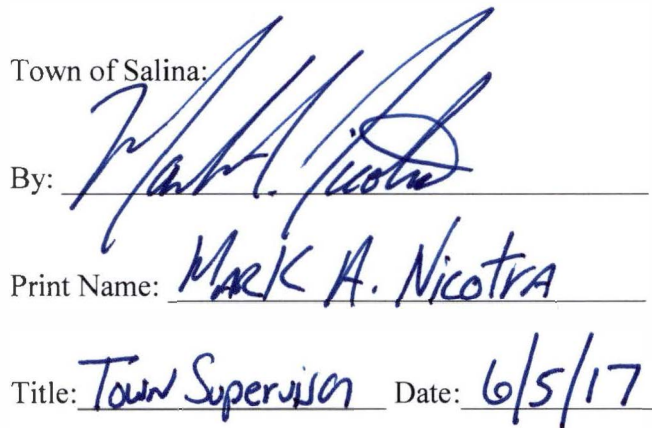 Town of Salina:
By: Mark A. Nicotra
Print Name: MARK A. NicotrA
Title: Town Supervisor Date: 6/5/17